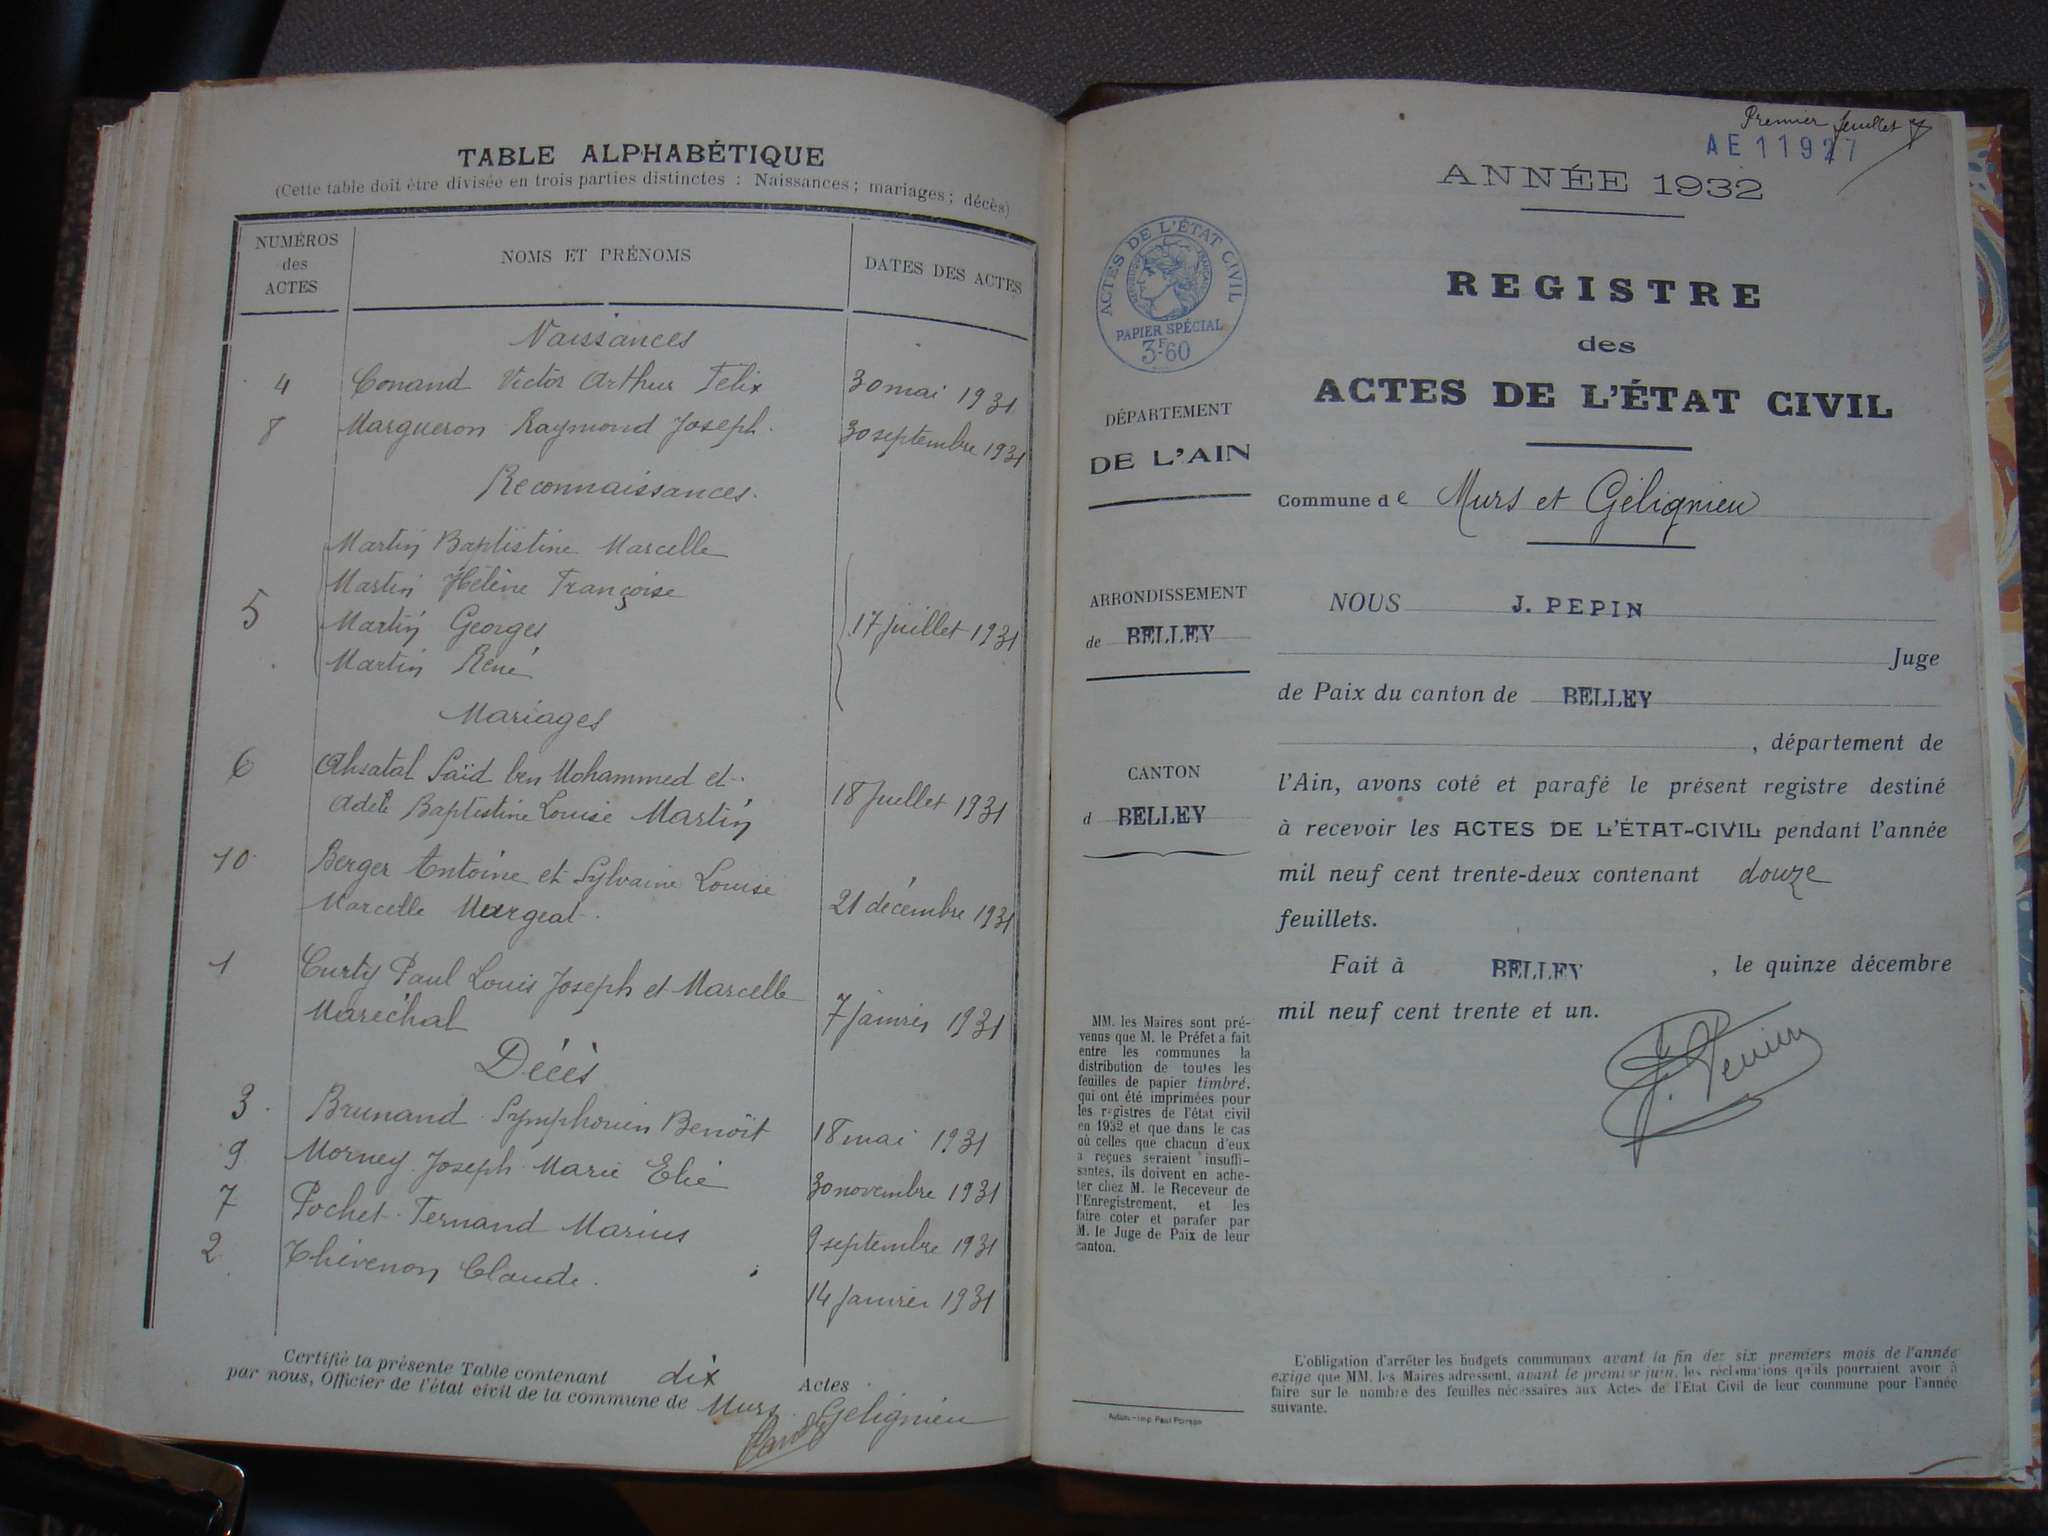 TABLE ALPHABÉTIQUE
(Cette table doit être divisée en trois parties distinctes : Naissances ; mariages ; décès)
NUMÉROS des ACTES
NOMS ET PRÉNOMS
DATES DES ACTES
Naissances
4 Conand Victor Arthur Félix 30 mai 1931
8 Margueron Raymond Joseph. 30 septembre 1931
Reconnaissances.
Martin Baptistine Marcelle
Martin Hélène Françoise
5 Martin Georges 17 juillet 1931
Martin René
Mariages
6 Ahsatal Saïd ben Mohammed et
Adèle Baptistine Louise Martin 18 Juillet 1931
10 Berger Antoine et Sylvaine Louise
Marcelle Murgeat. 21 décembre 1931
1 Curty Paul Louis Joseph et Marcelle
Maréchal 7 janvier 1931
Décès
3 Brunand Symphorien Benoît 18 mai 1931
9 Morney Joseph Marie Elie 30 novembre 1931
7 Pochet Fernand Marius 9 septembre 1931
2 Thévenon Claude. 14 janvier 1931
Certifié la présente Table contenant dix Actes
par nous, Officier de l'état civil de la commune de Murs Gélignieu
Premier feuillet
AE 11927
ANNÉE 1932
REGISTRE
des
ACTES DE L'ÉTAT CIVIL
ACTES DE L'ÉTAT CIVIL
RÉPUBLIQUE FRANÇAISE
PAPIER SPÉCIAL
3F.60
DÉPARTEMENT
DE L'AIN
ARRONDISSEMENT
de BELLEY
CANTON
d BELLEY
MM. les Maires sont pré-
venus que M. le Préfet a fait
entre les communes la
distribution de toutes les
feuilles de papier timbré,
qui ont été imprimées pour
les registres de l'état civil
en 1932 et que dans le cas
où celles que chacun d'eux
a reçues seraient insuffi-
santes, ils doivent en ache-
ter chez M. le Receveur de
l'Enregistrement, et les
faire coter et parafer par
M. le Juge de Paix de leur
canton.
Commune de Murs et Gélignieu
NOUS J. PEPIN
Juge
de Paix du canton de BELLEY
, département de
l'Ain, avons coté et parafé le présent registre destiné
à recevoir les ACTES DE L'ÉTAT-CIVIL pendant l'année
mil neuf cent trente-deux contenant douze
feuillets.
Fait à BELLEY , le quinze décembre
mil neuf cent trente et un.
L'obligation d'arrêter les budgets communaux avant la fin des six premiers mois de l'année
exige que MM. les Maires adressent, avant le premier juin, les réclamations qu'ils pourraient avoir à
faire sur le nombre des feuilles nécessaires aux Actes de l'Etat Civil de leur commune pour l'année
suivante.